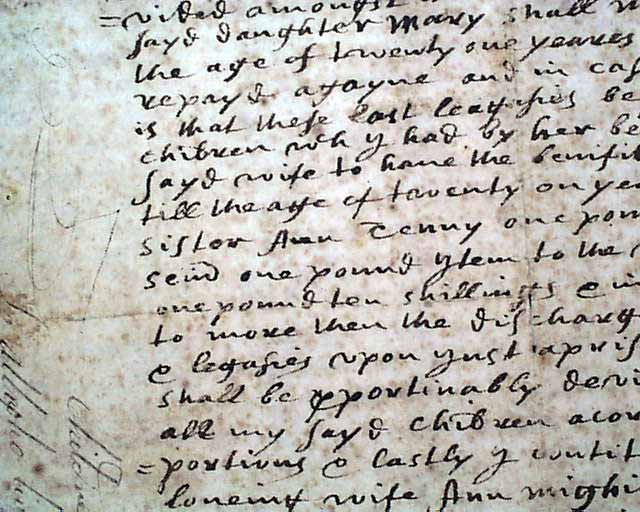 =vided amongst
sayd daughter Mary shall
the age of twenty one yeares
repayd agayne and in cas
is that these last leagasies be
children wh y had by her be
sayd wife to have the benifit
till the age of twenty on yea
sister Ann Tenny one poun
send one pound ytem to the
one pound ten shillings &
to more then the discharg
& legasies upon yust apris
shall be pportinably devi
all my sayd children acor
=portions & lastly y
loveing wife Ann